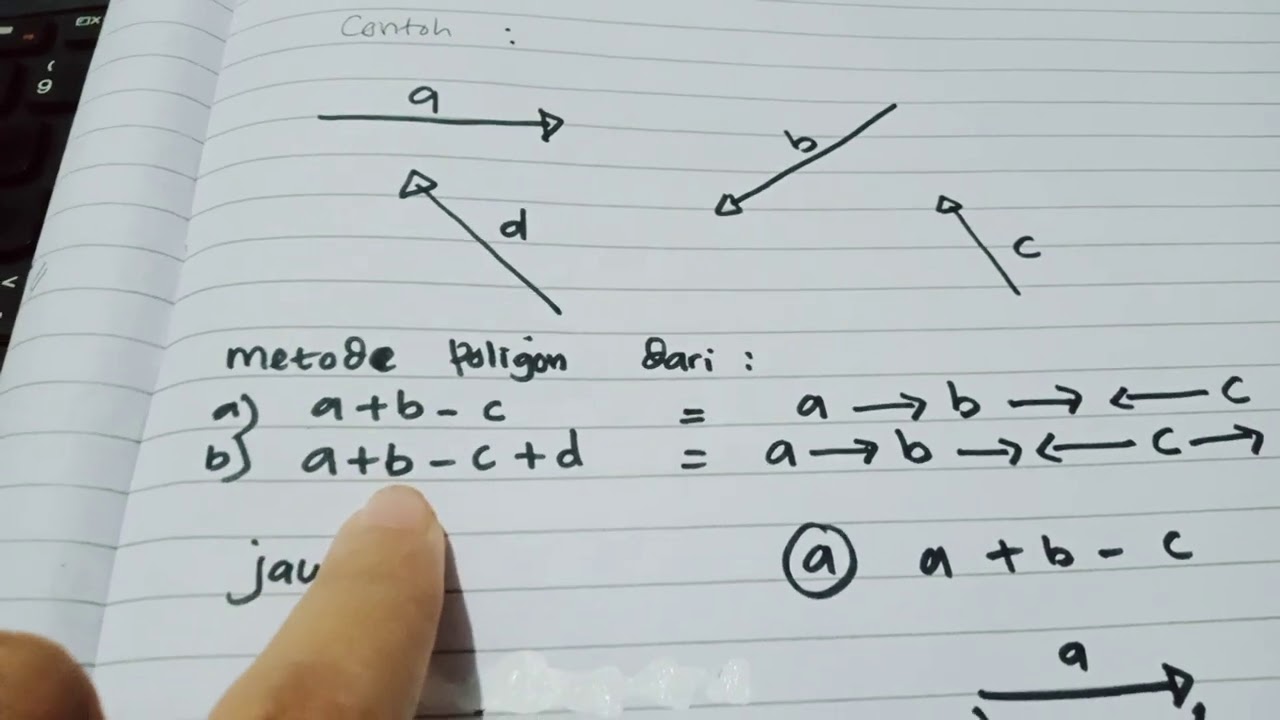 Contoh :
a
b
d
c
metode poligon dari :
a) a + b - c = a → b → ← c
b) a + b - c + d = a → b → ← c →
ⓐ a + b - c
a